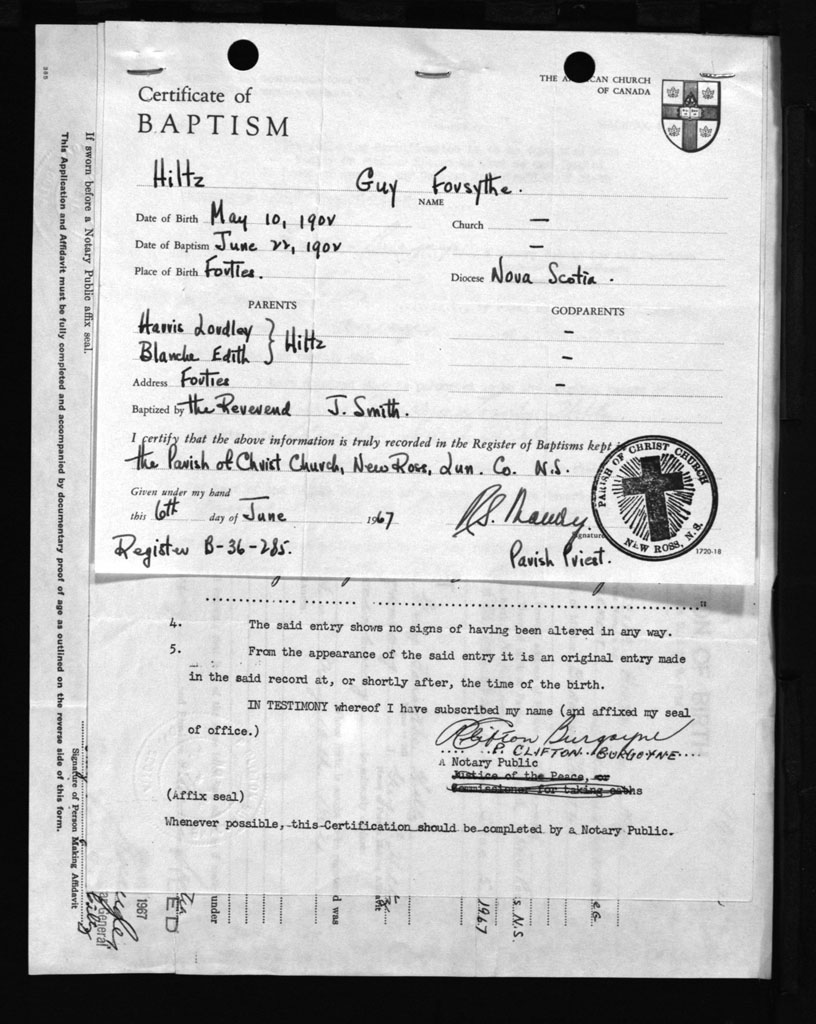 Certificate of
BAPTISM
THE CAN CHURCH
OF CANADA
Hiltz Guy Forsythe.
NAME
Date of Birth May 10, 1902 Church —
Date of Baptism June 22, 1902 —
Place of Birth Forties. Diocese Nova Scotia.
PARENTS GODPARENTS
Harris Lordley } Hiltz –
Blanche Edith –
Address Forties –
Baptized by the Reverend J. Smith.
I certify that the above information is truly recorded in the Register of Baptisms kept
the Parish of Christ Church, New Ross, Lun. Co. N.S.
Given under my hand
this 6th day of June 1967
Signature
Register B-36-285. Parish Priest.
PARISH OF CHRIST CHURCH
NEW ROSS, N.S.
1720-18
4. The said entry shows no signs of having been altered in any way.
5. From the appearance of the said entry it is an original entry made
in the said record at, or shortly after, the time of the birth.
IN TESTIMONY whereof I have subscribed my name (and affixed my seal
of office.)
Clifton Burgoyne
P. CLIFTON BURGOYNE
A Notary Public
Justice of the Peace, or
Commissioner for taking oaths
(Affix seal)
Whenever possible, this Certification should be completed by a Notary Public.
If sworn before a Notary Public affix seal.
This Application and Affidavit must be fully completed and accompanied by documentary proof of age as outlined on the reverse side of this form.
Signature of Person Making Affidavit
General
1967
ED
under
d was
1967
S N.S.